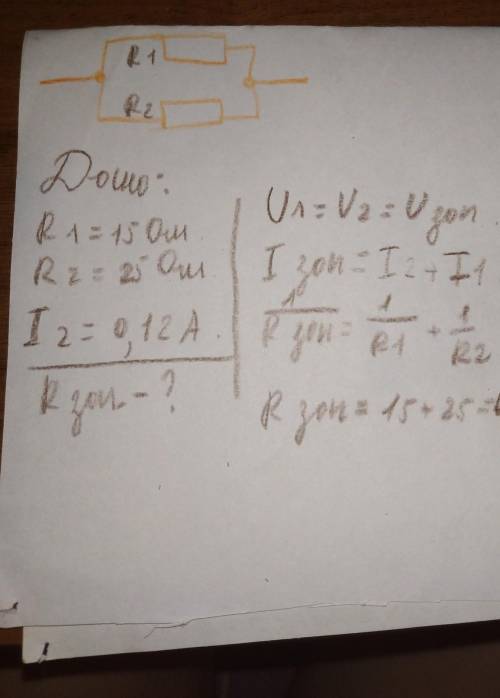 R1
R2
Дано:
R1 = 15 Ом.
R2 = 25 Ом
I2 = 0,12 А.
R зап - ?
U1 = U2 = U зап.
I зап = I2 + I1
1/R зап = 1/R1 + 1/R2
R зап = 15 + 25 =